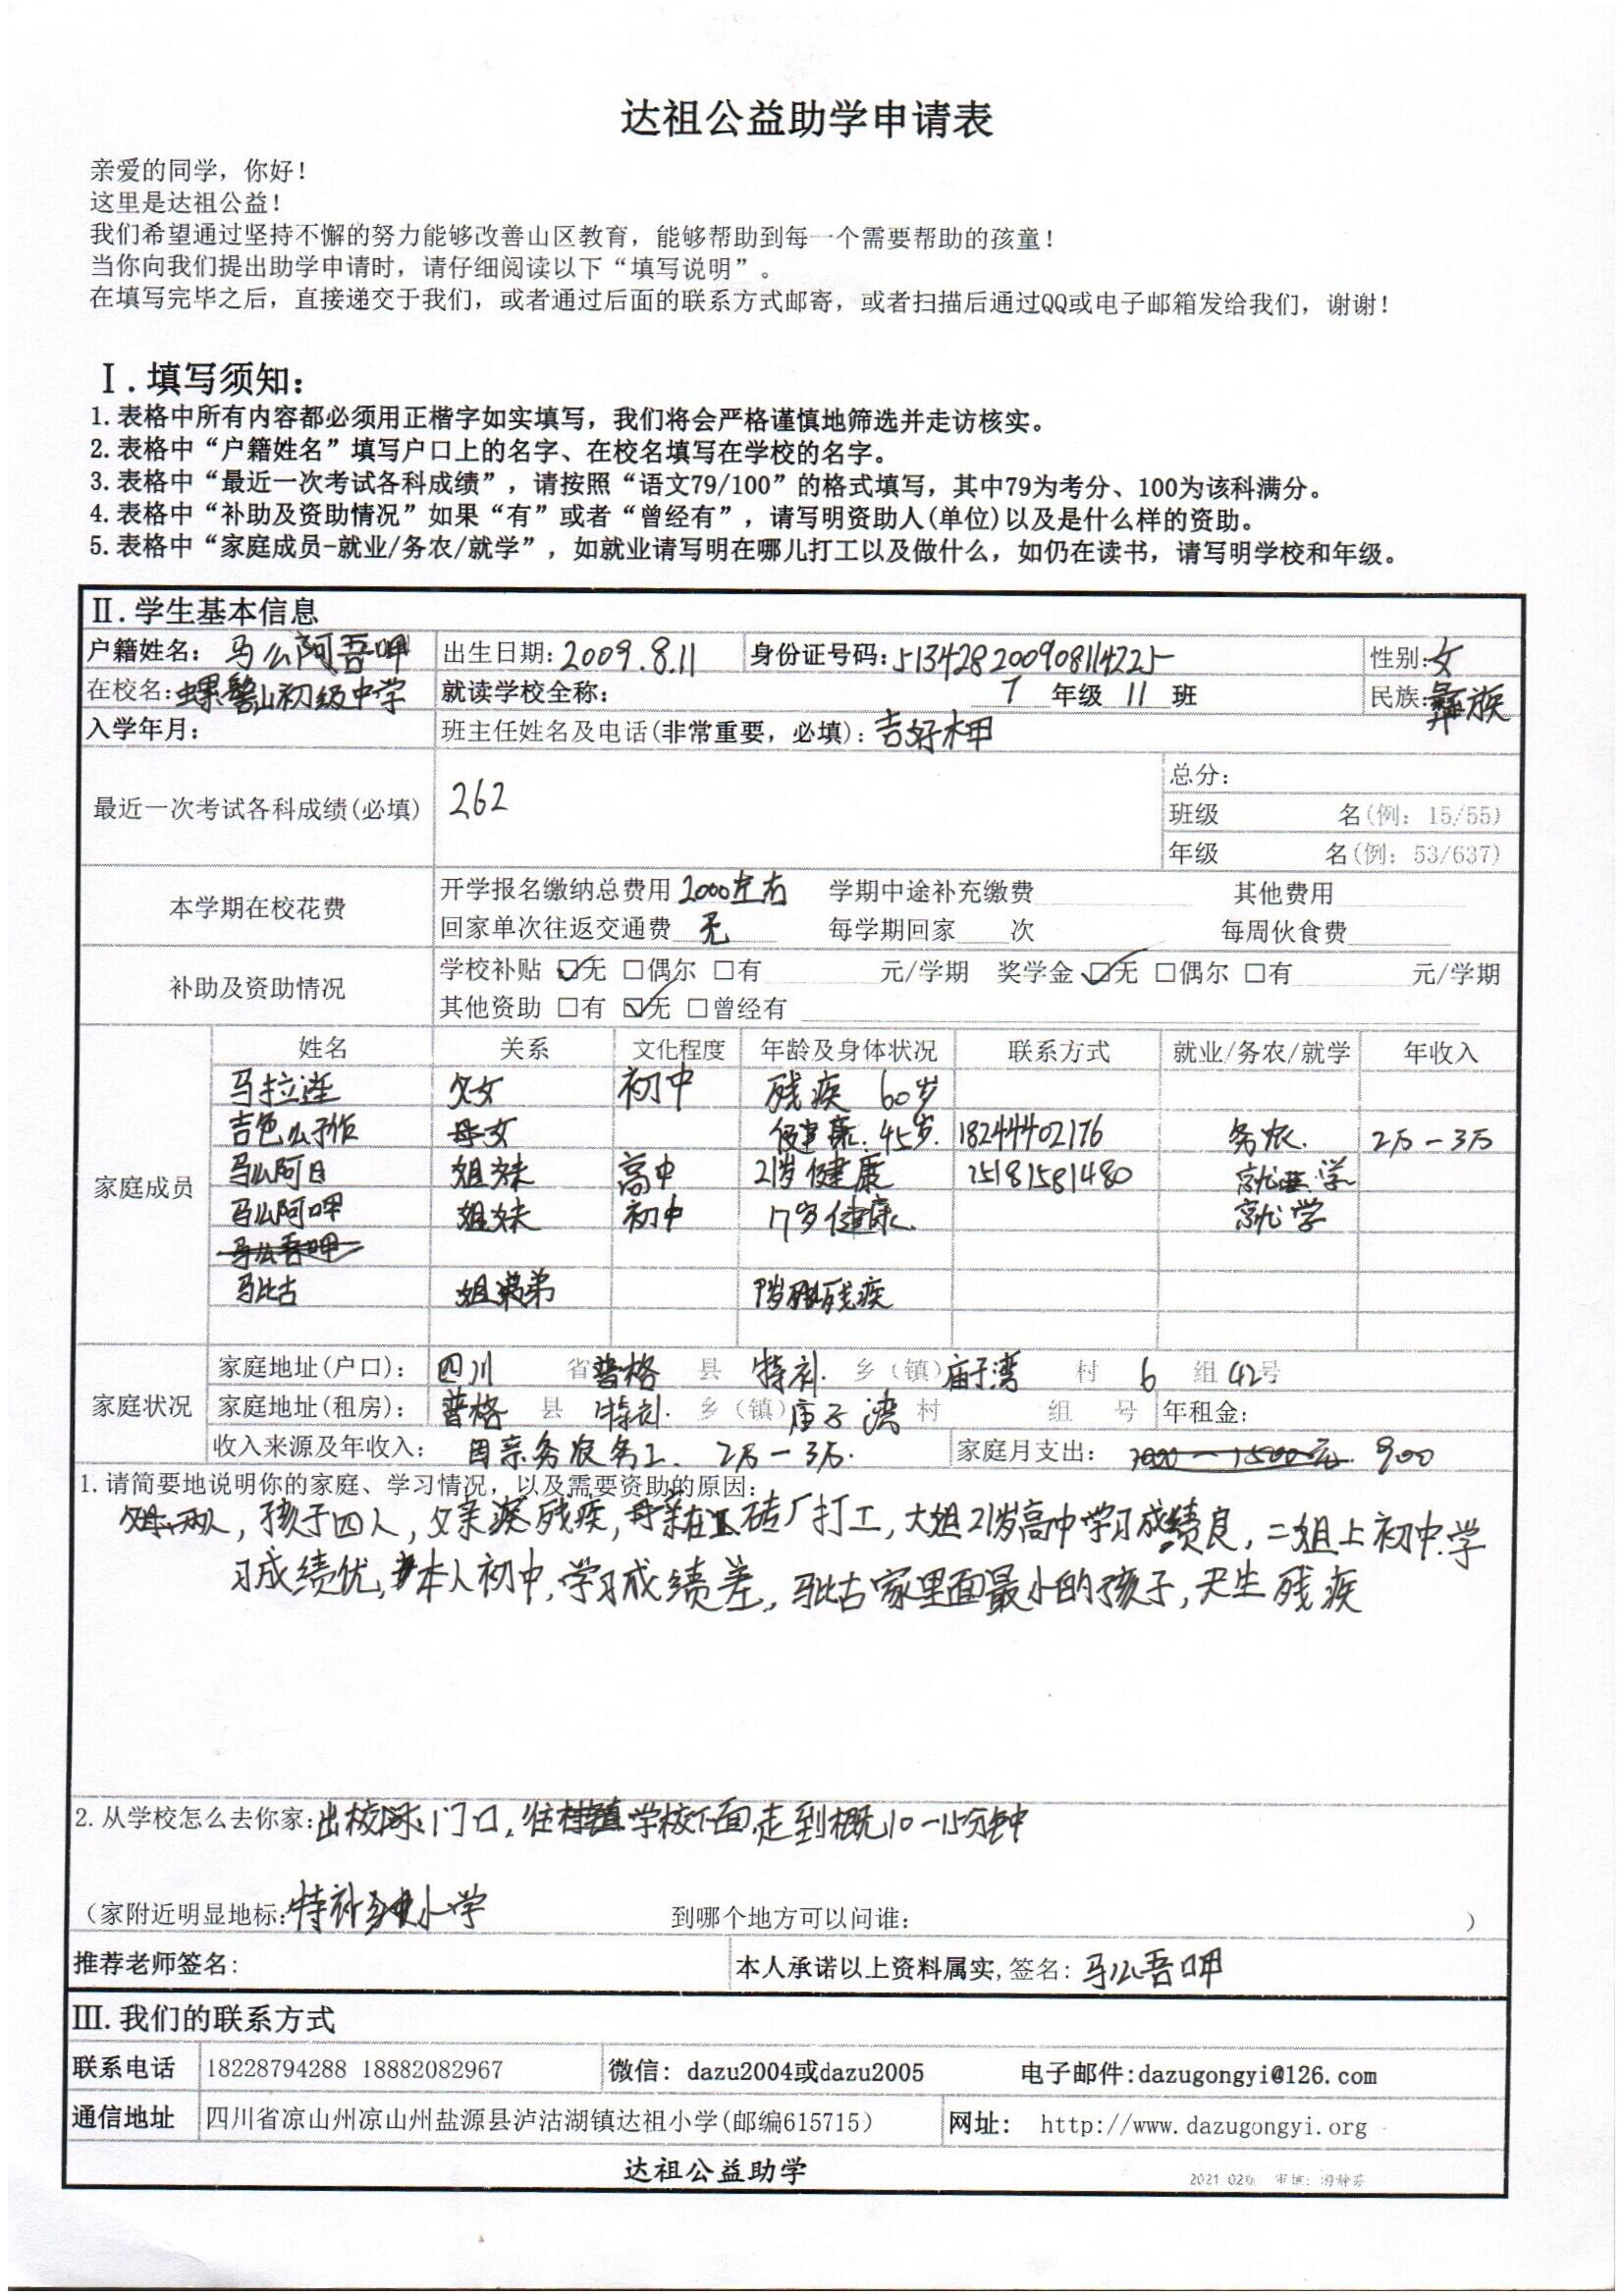 达祖公益助学申请表
亲爱的同学，你好！
这里是达祖公益！
我们希望通过坚持不懈的努力能够改善山区教育，能够帮助到每一个需要帮助的孩童！
当你向我们提出助学申请时，请仔细阅读以下“填写说明”。
在填写完毕之后，直接递交于我们，或者通过后面的联系方式邮寄，或者扫描后通过QQ或电子邮箱发给我们，谢谢！
Ⅰ.填写须知：
1.表格中所有内容都必须用正楷字如实填写，我们将会严格谨慎地筛选并走访核实。
2.表格中“户籍姓名”填写户口上的名字、在校名填写在学校的名字。
3.表格中“最近一次考试各科成绩”，请按照“语文79/100”的格式填写，其中79为考分、100为该科满分。
4.表格中“补助及资助情况”如果“有”或者“曾经有”，请写明资助人(单位)以及是什么样的资助。
5.表格中“家庭成员-就业/务农/就学”，如就业请写明在哪儿打工以及做什么，如仍在读书，请写明学校和年级。
Ⅱ.学生基本信息
户籍姓名：马么阿吾呷 出生日期：2009.8.11 身份证号码：513428200908114225 性别：女
在校名：螺髻山初级中学 就读学校全称： 7 年级 11 班 民族：彝族
入学年月： 班主任姓名及电话(非常重要，必填)：吉好木甲
最近一次考试各科成绩(必填) 262 总分：
班级 名(例：15/55)
年级 名(例：53/637)
本学期在校花费 开学报名缴纳总费用 2000左右 学期中途补充缴费 其他费用
回家单次往返交通费 无 每学期回家 次 每周伙食费
补助及资助情况 学校补贴 ☑无 □偶尔 □有 元/学期 奖学金 ☑无 □偶尔 □有 元/学期
其他资助 □有 ☑无 □曾经有
家庭成员 姓名 关系 文化程度 年龄及身体状况 联系方式 就业/务农/就学 年收入
马拉连 父女 初中 残疾 60岁
吉色么子作 母女 健康.45岁. 18244402176 务农. 2万－3万
马么阿日 姐妹 高中 21岁健康 15181581480 就学
马么阿呷 姐妹 初中 17岁健康. 就学
马么吾呷
马比古 姐弟 残疾
家庭状况 家庭地址(户口)： 四川 省 普格 县 特补. 乡（镇）庙子湾 村 6 组 42号
家庭地址(租房)： 普格 县 特补. 乡（镇）庙子湾 村 组 号 年租金：
收入来源及年收入： 务农务工. 2万－3万. 家庭月支出： 1000－1500元. 900
1.请简要地说明你的家庭、学习情况，以及需要资助的原因：
父母两人，孩子四人，父亲残疾，母亲在砖厂打工，大姐21岁高中学习成绩良，二姐上初中.学
习成绩优，本人初中，学习成绩差，马比古家里面最小的孩子，天生残疾
2.从学校怎么去你家：出校门口，往学校下面，走到概10－15分钟
（家附近明显地标：特补小学 到哪个地方可以问谁： ）
推荐老师签名： 本人承诺以上资料属实，签名：马么吾呷
Ⅲ.我们的联系方式
联系电话 18228794288 18882082967 微信：dazu2004或dazu2005 电子邮件:dazugongyi@126.com
通信地址 四川省凉山州凉山州盐源县泸沽湖镇达祖小学(邮编615715) 网址： http://www.dazugongyi.org
达祖公益助学 2021 02